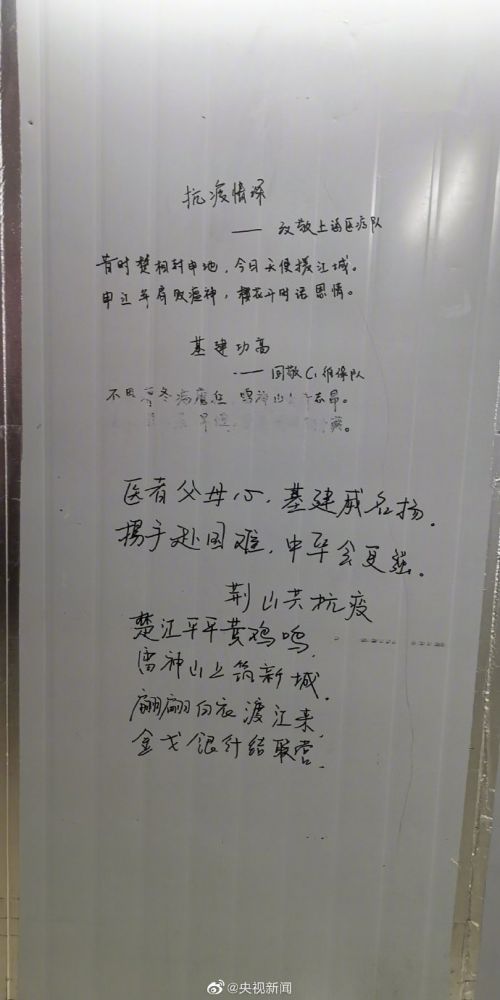 抗疫情深
—— 致敬上海医疗队
昔时楚相封申地，今日天使援江城。
申江年肩败瘟神，樱花开时话恩情。
基建功高
—— 回敬C1维保队
不因寒冬病魔 雷神山 志昂
医者父母心，基建威名扬。
携手赴国难，中华会更强。
荆山共抗疫
楚江平平黄鸡鸣
雷神山上筑新城
翩翩白衣渡江来
金戈银针结联营
@央视新闻